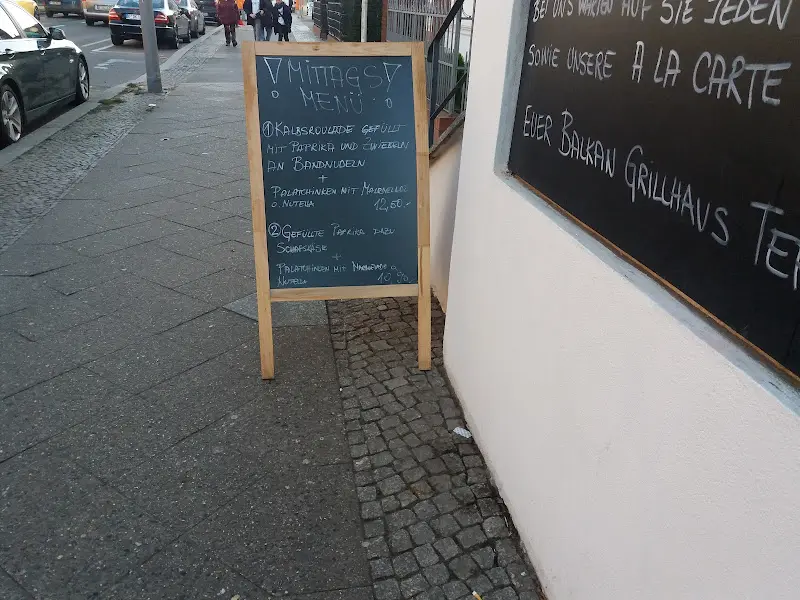 ! MITTAGS !
MENÜ
① KALBSROULADE GEFÜLLT
MIT PAPRIKA UND ZWIEBELN
AN BANDNUDELN
+
PALATCHINKEN MIT MARMELADE
O. NUTELLA 12,50.-
② GEFÜLLTE PAPRIKA DAZU
SCHAFSKÄSE
+
PALATCHINKEN MIT MARMELADE O.
NUTELLA 10,90.
BEI UNS WARTEN AUF SIE JEDEN
SOWIE UNSERE A LA CARTE
EUER BALKAN GRILLHAUS TE